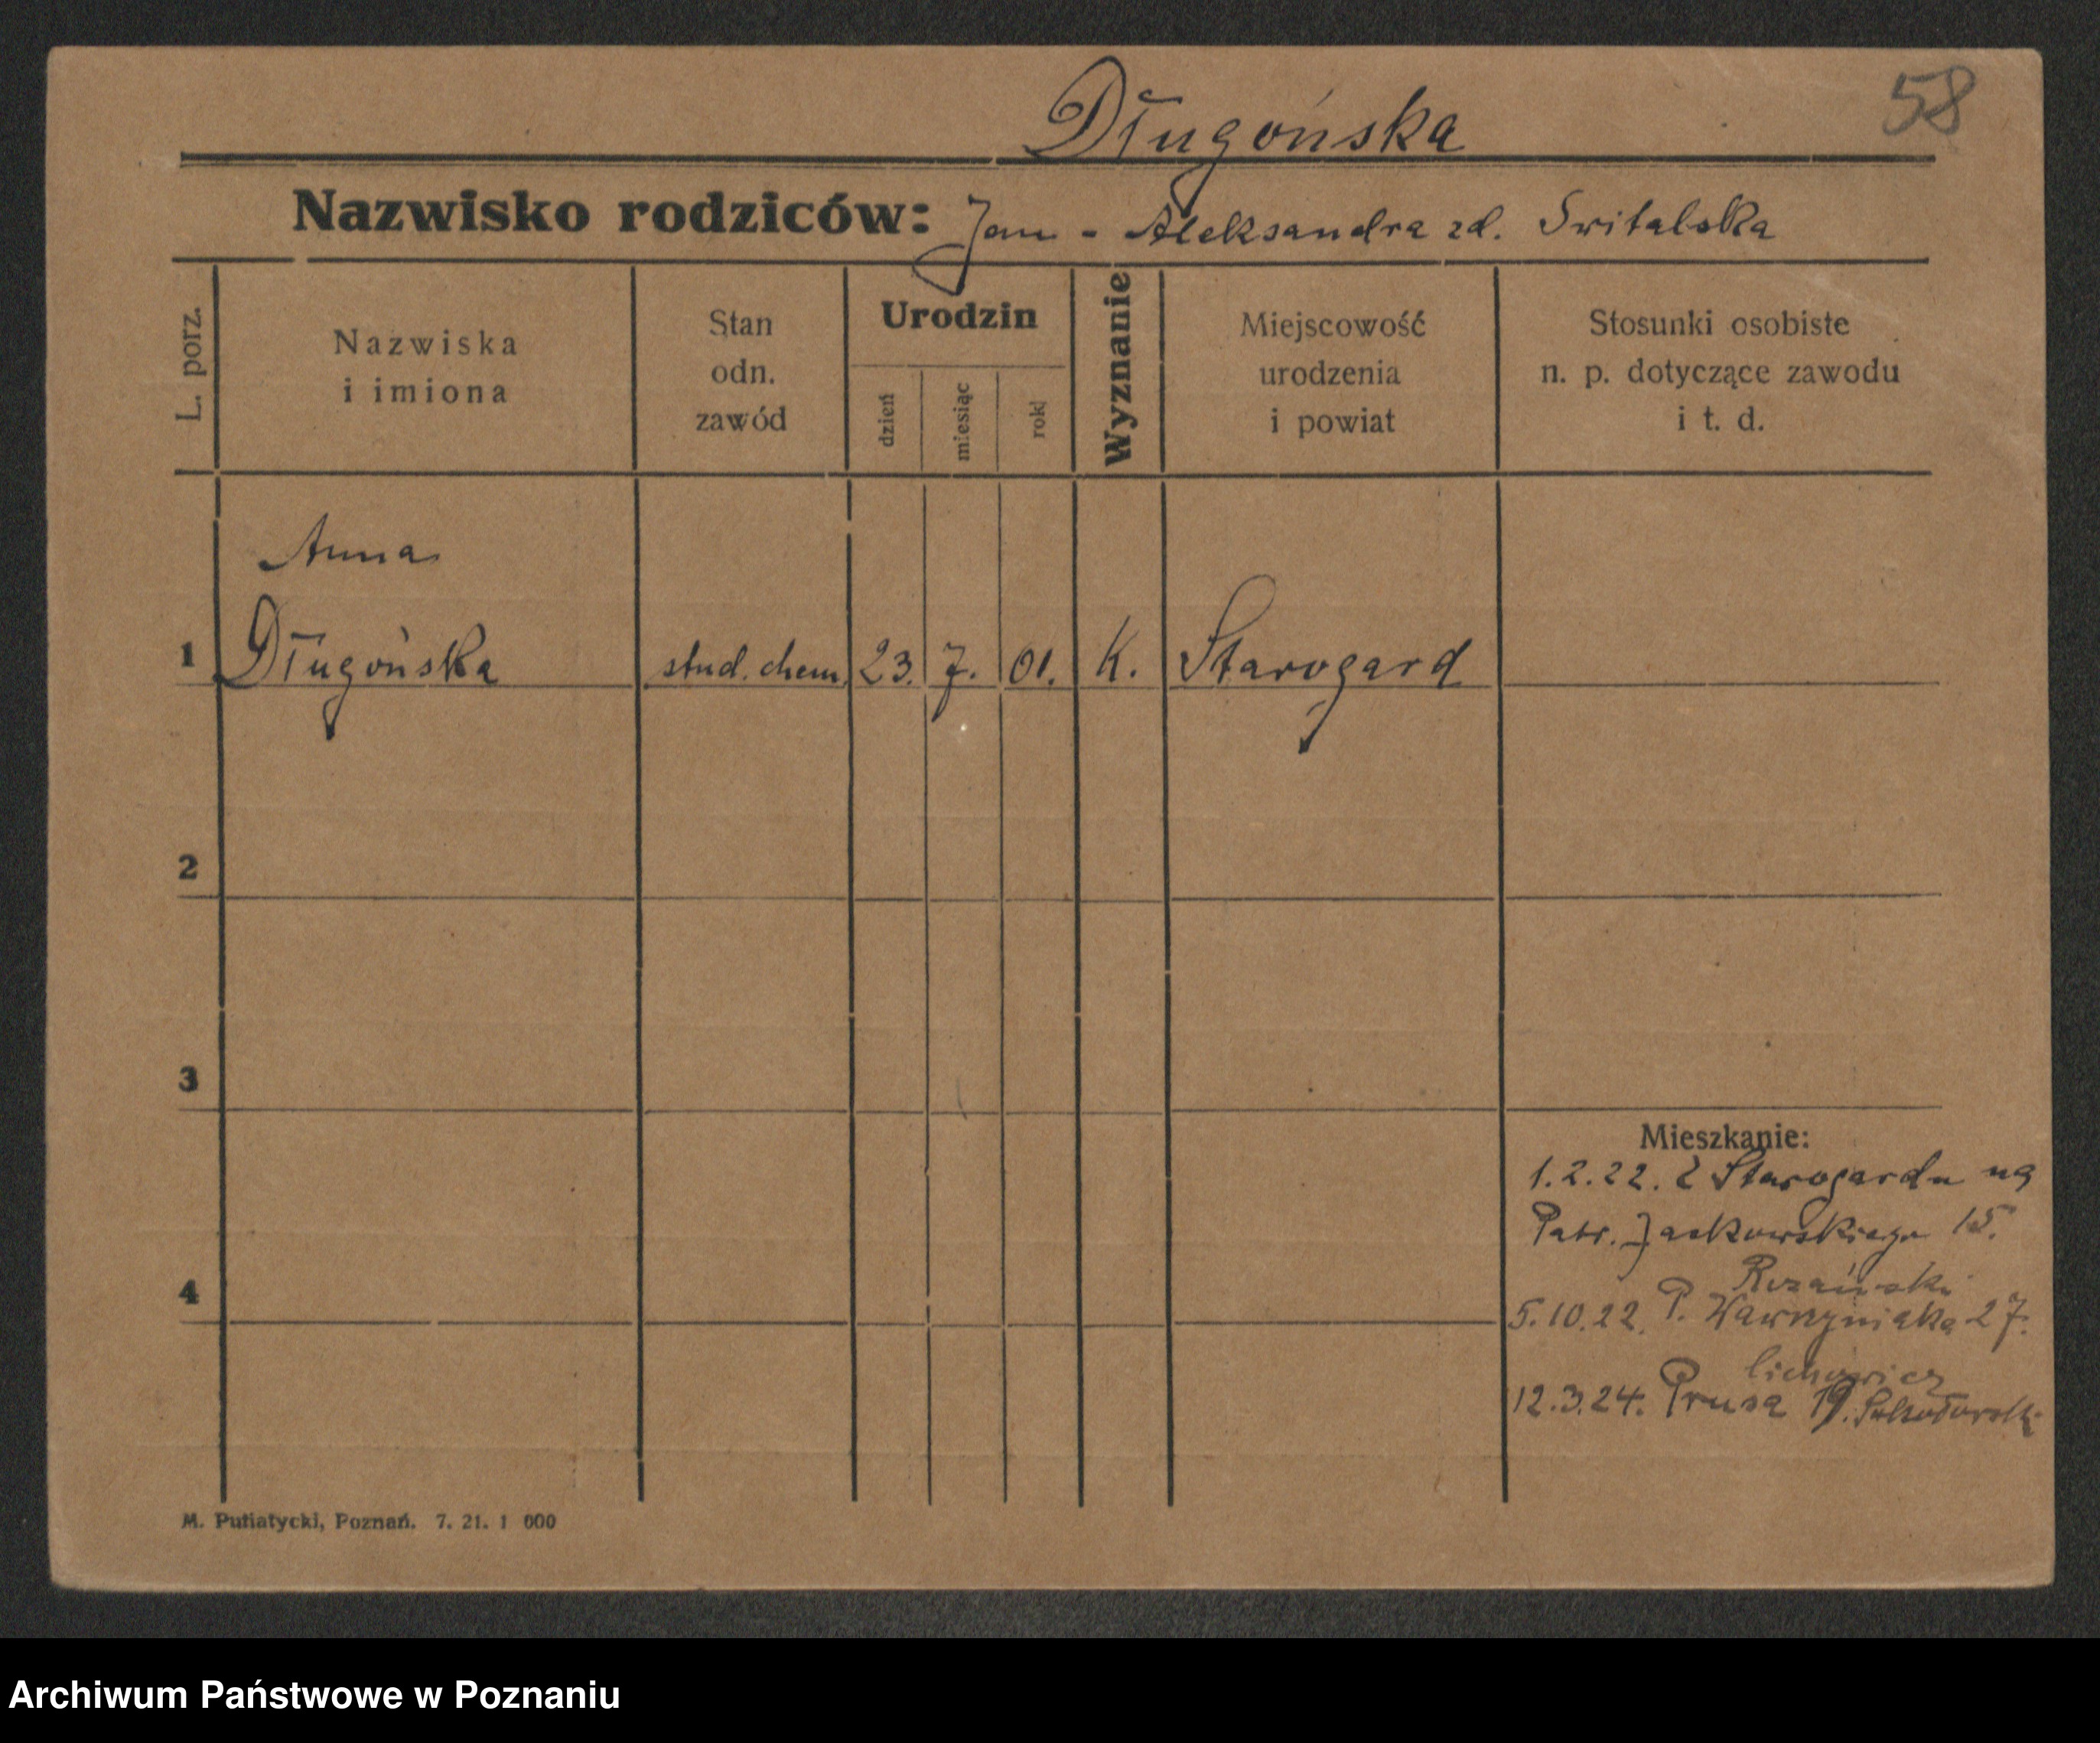 58
Długońska
Nazwisko rodziców: Jan - Aleksandra zd. Switalska
L. porz.
Nazwiska
i imiona
Stan
odn.
zawód
Urodzin
dzień
miesiąc
rok
Wyznanie
Miejscowość
urodzenia
i powiat
Stosunki osobiste
n. p. dotyczące zawodu
i t. d.
Anna
1 Długońska stud. chem. 23. 7. 01. K. Starogard
2
3
4
Mieszkanie:
1.2.22. Z Starogardu na
Patr. Jackowskiego 15.
5.10.22. P. Wawrzyniaka 27.
12.3.24. Prusa 19.
M. Putiatycki, Poznań. 7. 21. 1 000
Archiwum Państwowe w Poznaniu